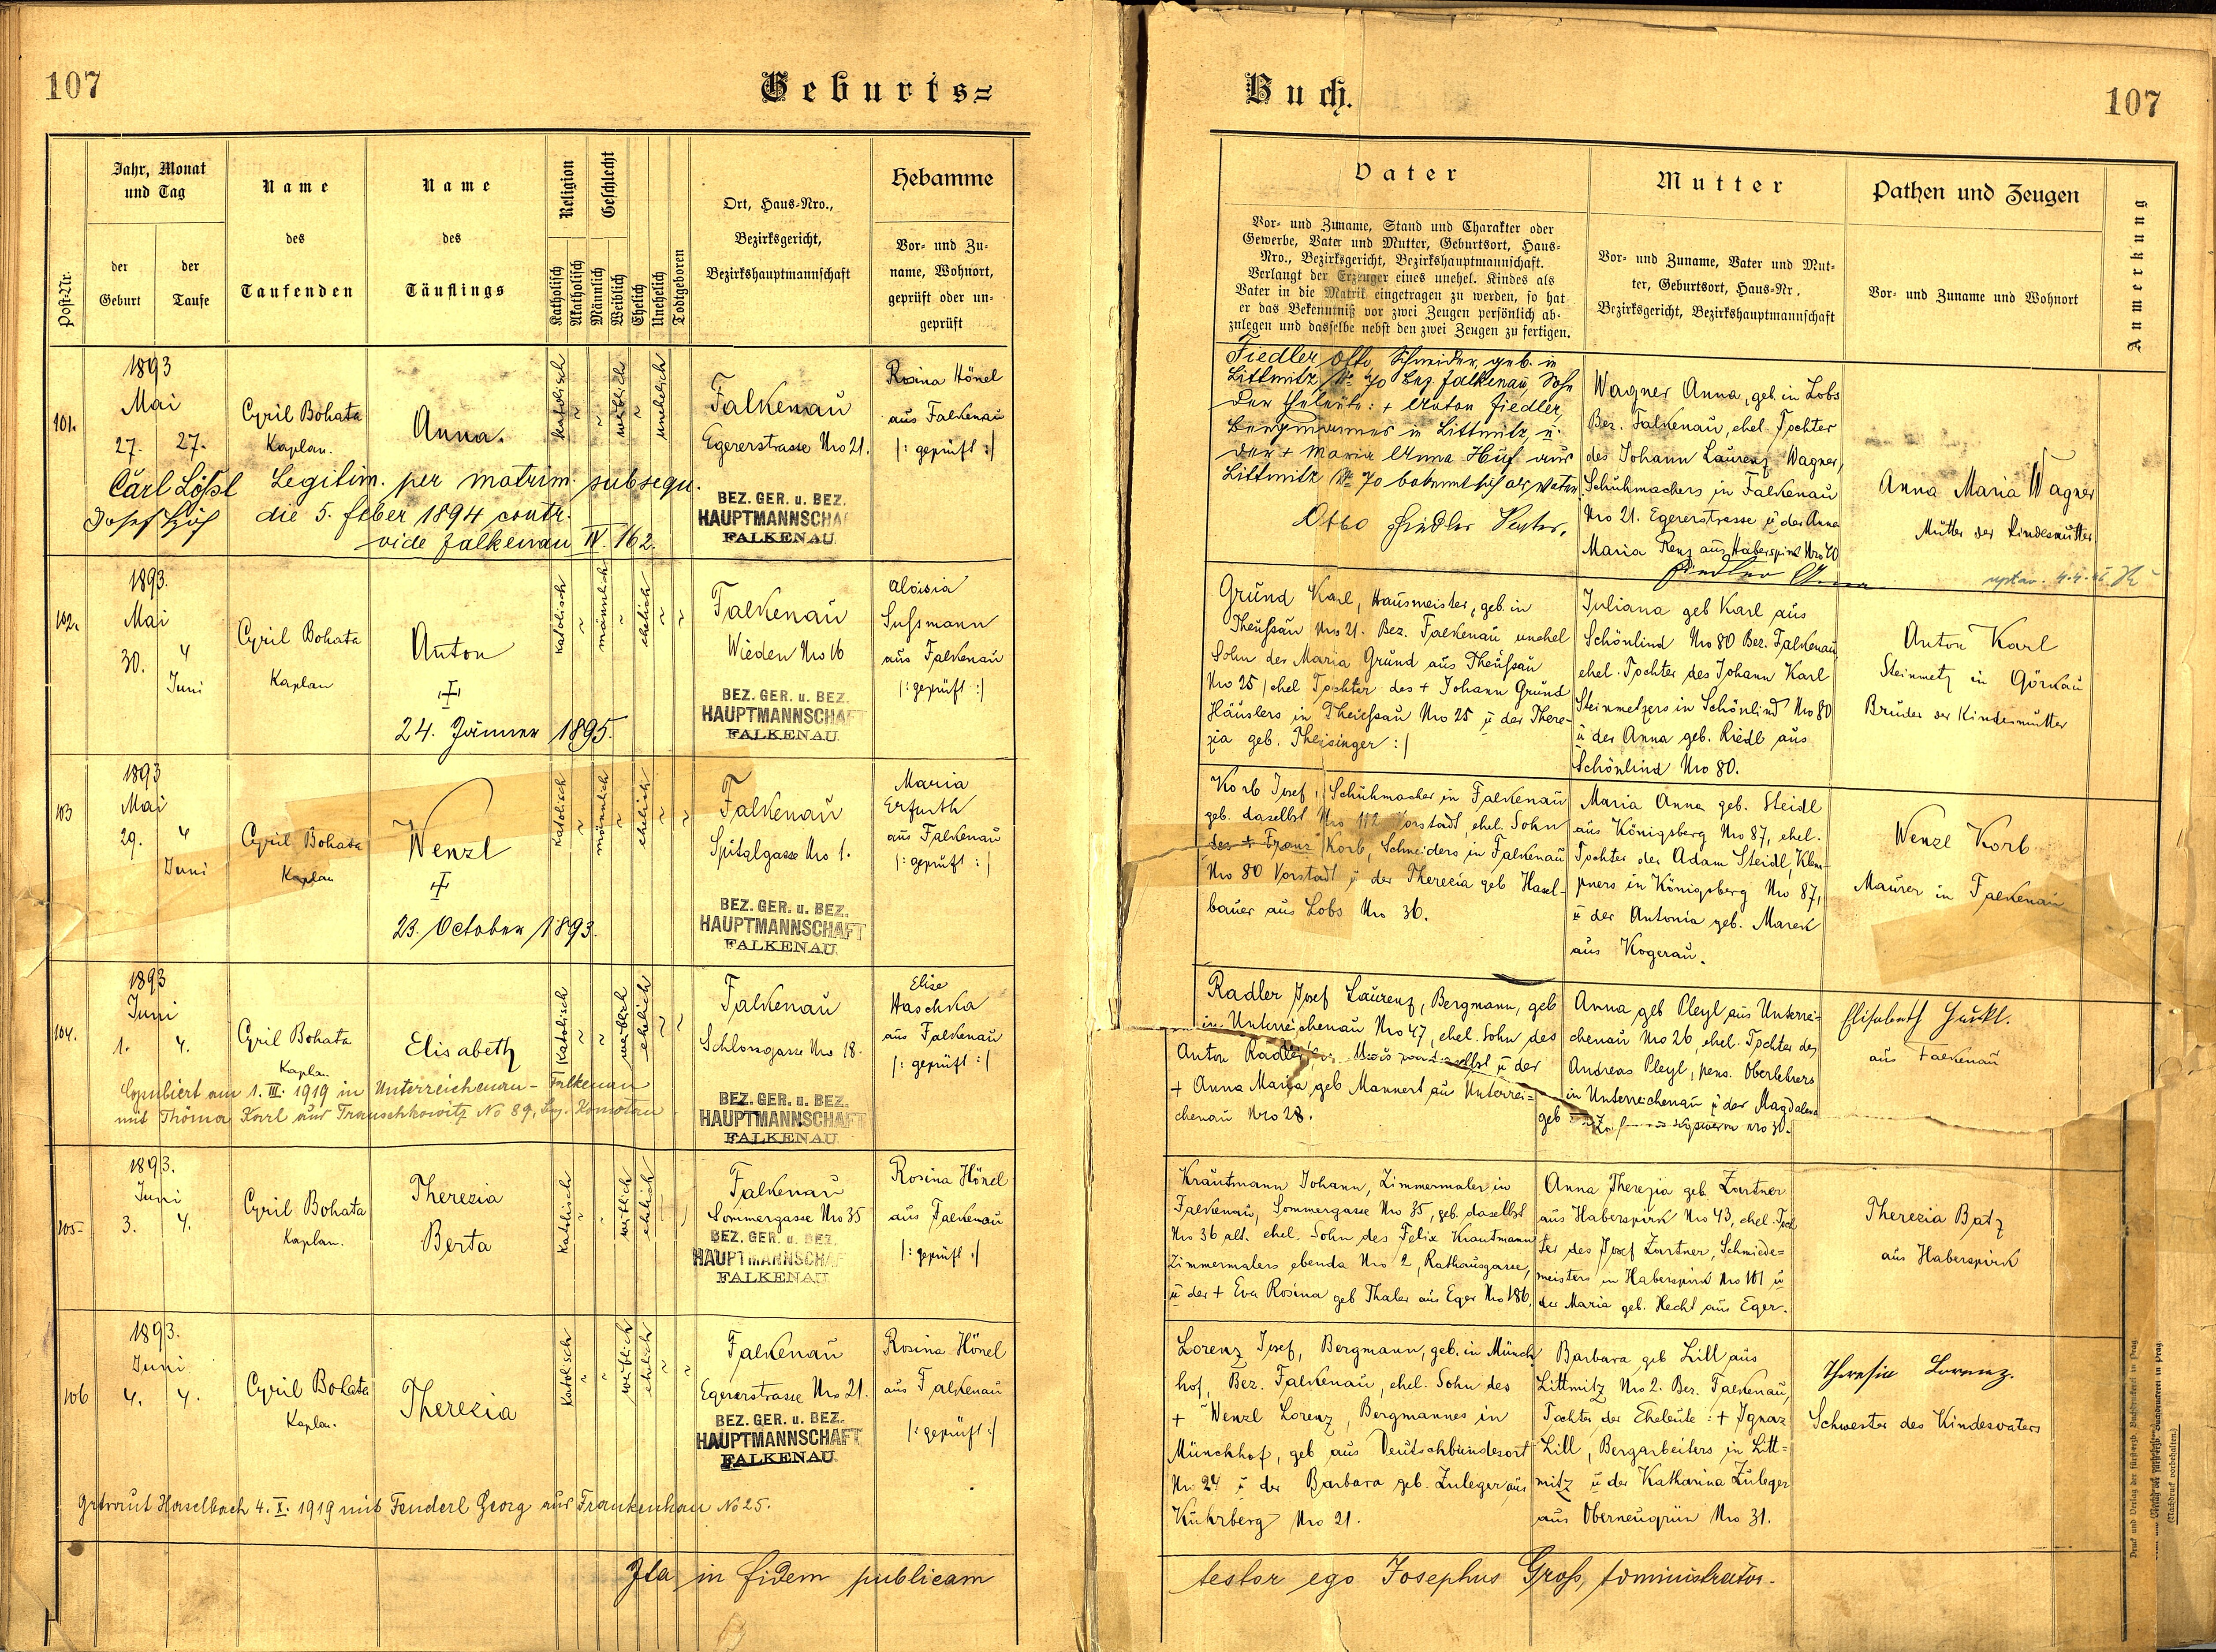 107
Geburts=
Jahr, Monat
und Tag
Name
Name
Religion
Geschlecht
Hebamme
Ort, Haus-Nro.,
des
des
Bezirksgericht,
Vor- und Zu-
der
der
name, Wohnort,
Bezirkshauptmannschaft
Post-Nr.
Geburt
Taufe
Taufenden
Täuflings
Katholisch
Akatholisch
Männlich
Weiblich
Ehelich
Unehelich
Todtgeboren
geprüft oder un-
geprüft
101.
1893
Mai
27. 27.
Cyril Bohata
Kaplan.
Anna.
katolisch
weiblich
unehelich
Falkenau
Egererstrasse Nro 21.
BEZ. GER. u. BEZ.
HAUPTMANNSCHA
FALKENAU
Rosina Hönel
aus Falkenau
|: geprüft :|
Carl Lößl Legitim. per matrim. subsequ.
Josef die 5. feber 1894 contr.
vide Falkenau IV. 162.
102.
1893.
Mai
30. 4
Juni
Cyril Bohata
Kaplan
Anton
†
24. Jänner 1895.
katolisch
männlich
ehelich
Falkenau
Wieden Nro 16
BEZ. GER. u. BEZ.
HAUPTMANNSCHAFT
FALKENAU
Aloisia
Sussmann
aus Falkenau
|: geprüft :|
103
1893
Mai
29. 4
Juni
Cyril Bohata
Kaplan
Wenzl
†
23. October 1893.
Katolisch
männlich
ehelich
Falkenau
Spitalgasse Nro 1.
BEZ. GER. u. BEZ.
HAUPTMANNSCHAFT
FALKENAU
Maria
Erfurth
aus Falkenau
|: geprüft :|
104.
1893
Juni
1. 4.
Cyril Bohata
Kapla.
Elisabeth
Katolisch
weiblich
ehelich
Falkenau
Schlossgasse Nro 18.
BEZ. GER. u. BEZ.
HAUPTMANNSCHAFT
FALKENAU
Elise
Haschka
aus Falkenau
|: geprüft :|
Copuliert am 1. III. 1919 in Unterreichenau - Falkenau
mit Thöma Karl aus Trauschkowitz No 89, Bez. Komotau
105
1893.
Juni
3. 4.
Cyril Bohata
Kaplan.
Therezia
Berta
Katolisch
weiblich
ehelich
Falkenau
Sommergasse Nro 35
BEZ. GER. u. BEZ.
HAUPTMANNSCHA
FALKENAU
Rosina Hönel
aus Falkenau
|: geprüft :|
106
1893.
Juni
4. 4.
Cyril Bohata
Kaplan.
Therezia
Katolisch
weiblich
ehelich
Falkenau
Egererstrasse Nro 21.
BEZ. GER. u. BEZ.
HAUPTMANNSCHAFT
FALKENAU
Rosina Hönel
aus Falkenau
|: geprüft :|
getraut Haselbach 4. X. 1919 mit Fenderl Georg aus Frankenhau No 25.
Ita in fidem publicam
Buch.
107
Vater
Mutter
Pathen und Zeugen
Anmerkung
Vor- und Zuname, Stand und Charakter oder
Gewerbe, Vater und Mutter, Geburtsort, Haus-
Nro., Bezirksgericht, Bezirkshauptmannschaft.
Verlangt der Erzeuger eines unehel. Kindes als
Vater in die Matrik eingetragen zu werden, so hat
er das Bekenntniß vor zwei Zeugen persönlich ab-
zulegen und dasselbe nebst den zwei Zeugen zu fertigen.
Vor- und Zuname, Vater und Mut-
ter, Geburtsort, Haus-Nr.,
Bezirksgericht, Bezirkshauptmannschaft
Vor- und Zuname und Wohnort
Fiedler Otto, Schneider, geb. in
Littmitz No 70 Bez. Falkenau, Sohn
der Eheleute: + Anton Fiedler,
Bergmannes in Littmitz, u.
der + Maria Anna Huf aus
Littmitz No 70 bekennt sich als Vater.
Otto Fiedler Vater.
Wagner Anna, geb. in Lobs
Bez. Falkenau, ehel. Tochter
des Johann Laurenz Wagner,
Schuhmachers in Falkenau
Nro 21. Egererstrasse u der Anna
Maria Renz aus Haberspirk Nro 40
Fiedler Anna
Anna Maria Wagner
Mutter der Kindesmutter
Grund Karl, Hausmeister, geb. in
Theussau Nro 21. Bez. Falkenau unehel
Sohn der Maria Grund aus Theussau
Nro 25 | ehel Tochter des + Johann Grund
Häuslers in Theussau Nro 25 u der There-
zia geb. Theisinger :|
Juliana geb Karl aus
Schönlind Nro 80 Bez. Falkenau,
ehel. Tochter des Johann Karl
Steinmetzers in Schönlind Nro 80
u der Anna geb. Riedl aus
Schönlind Nro 80.
Anton Karl
Steinmetz in Görkau
Bruder der Kindesmutter
Korb Josef, Schuhmacher in Falkenau
geb. daselbst Nro 112 Vorstadt, ehel. Sohn
des + Franz Korb, Schneiders in Falkenau
Nro 80 Vorstadt u der Therezia geb Hasel-
bauer aus Lobs Nro 36.
Maria Anna geb. Steidl
aus Königsberg Nro 87, ehel.
Tochter des Adam Steidl, Klem-
pners in Königsberg Nro 87,
u der Antonia geb. Marek
aus Kogerau.
Wenzl Korb
Maurer in Falkenau
Radler Josef Laurenz, Bergmann, geb
in Unterreichenau Nro 47, ehel. Sohn des
Anton Radler, u der
+ Anna Maria geb Mannert aus Unterrei=
chenau Nro 28.
Anna geb Pleyl aus Unterrei-
chenau Nro 26, ehel. Tochter des
Andreas Pleyl, pens. Oberlehrers
in Unterreichenau u der Magdalena
geb Nro 30.
Elisabeth Hu
aus Falkenau
Krautmann Johann, Zimmermaler in
Falkenau, Sommergasse Nro 35, geb. daselbst
Nro 36 alt. ehel. Sohn des Felix Krautmann
Zimmermalers ebenda Nro 2, Rathausgasse,
u der + Eva Rosina geb Thaler aus Eger Nro 186.
Anna Therezia geb. Zartner
aus Haberspirk Nro 43, ehel. Toch
ter des Josef Zartner, Schmiede=
meisters in Haberspirk Nro 101 u
der Maria geb. Hecht aus Eger.
Therezia Batz
aus Haberspirk
Lorenz Josef, Bergmann, geb. in Münch
hof, Bez. Falkenau, ehel. Sohn des
+ Wenzl Lorenz, Bergmannes in
Münchhof, geb aus Deutschbundesort
Nro 24 u der Barbara geb. Zuleger aus
Kuhrberg Nro 21.
Barbara geb Lill aus
Littmitz Nro 2. Bez. Falkenau,
Tochter der Eheleute: + Ignaz
Lill, Bergarbeiters in Litt=
mitz u der Katharina Zuleger
aus Oberneugrün Nro 31.
Theresia Lorenz.
Schwester des Kindesvaters
testor ego Josephus Gross, administrator.
(Nachdruck vorbehalten.)